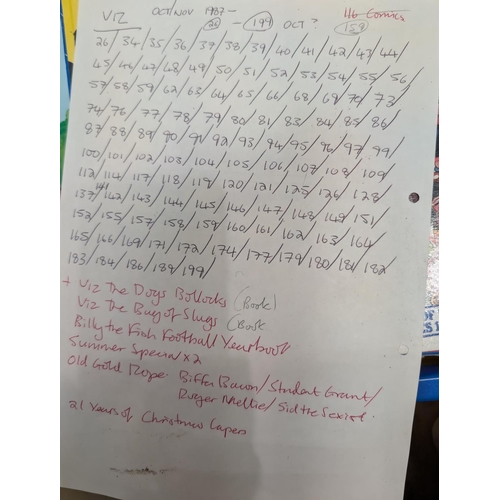 VIZ OCT/NOV 1987 – (26) – (199) OCT ? 116 Comics
(159)
26/34/35/36/37/38/39/40/41/42/43/44/
45/46/47/48/49/50/51/52/53/54/55/56
57/58/59/62/63/64/65/66/68/69/70/73
74/76/77/78/79/80/81/83/84/85/86/
87/88/89/90/91/92/93/94/95/96/97/99/
100/101/102/103/104/105/106/107/108/109/
112/114/117/118/119/120/121/125/126/128/
137/141/142/143/144/145/146/147/148/149/151/
152/155/157/158/159/160/161/162/163/164
165/166/169/171/172/174/177/179/180/181/182/
183/184/186/189/199/
+ Viz The Dogs Bollocks (Book)
Viz The Bag of Slugs (Book
Billy the Fish Football Yearbook
Summer Special x 2
Old Gold Rope Biffa Bacon/Student Grant/
Roger Mellie/Sid the Sexist.
21 Years of Christmas Capers